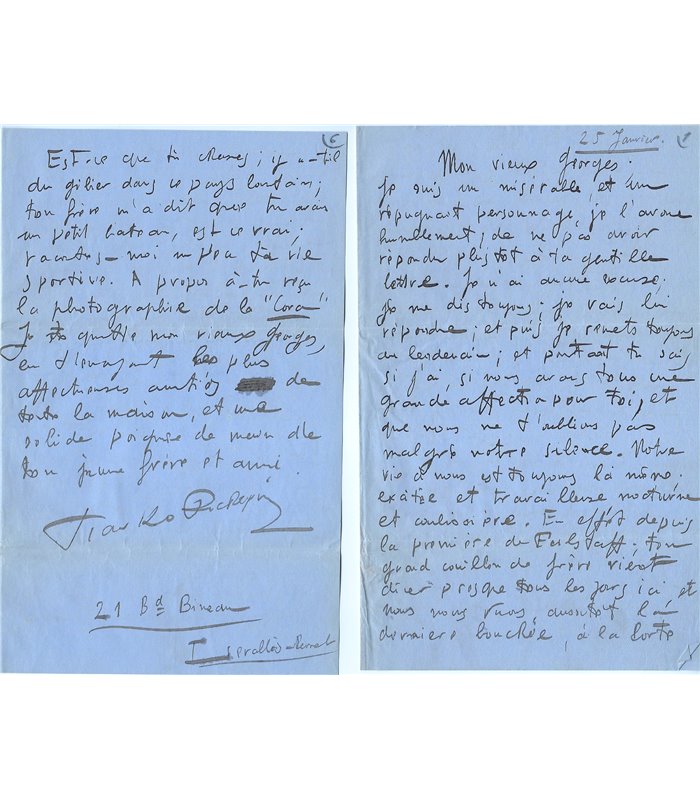 6
Est-ce que tu chasses; y a-t-il
du gibier dans ce pays lointain;
ton frère m'a dit que tu avais
un petit bateau, est ce vrai;
racontes-moi un peu ta vie
sportive. A propos a-tu reçu
la photographie de la "Cora"
Je te quitte mon vieux Georges,
en t'envoyant les plus
affectueuses amitiés de
toute la maison, et une
solide poignée de main de
ton jeune frère et ami.
Tiarko Richepin
21 Bd Bineau
Levallois-Perret
1
25 Janvier.
Mon vieux Georges.
Je suis un misérable et un
répugnant personnage, je l'avoue
humblement; de ne pas avoir
répondu plus tôt à ta gentille
lettre. Je n'ai aucune excuse.
Je me dis toujours; je vais lui
répondre; et puis je remets toujours
au lendemain; et pourtant tu sais
si j'ai, si nous avons tous une
grande affection pour toi, et
que nous ne t'oublions pas
malgré notre silence. Notre
vie à nous est toujours la même.
excitée et travailleuse nocturne
et coulissière. En effet depuis
la première de Falstaff; ton
grand couillon de frère vient
diner presque tous les jours ici et
nous nous ruons aussitôt la
dernière bouchée, à la Porte